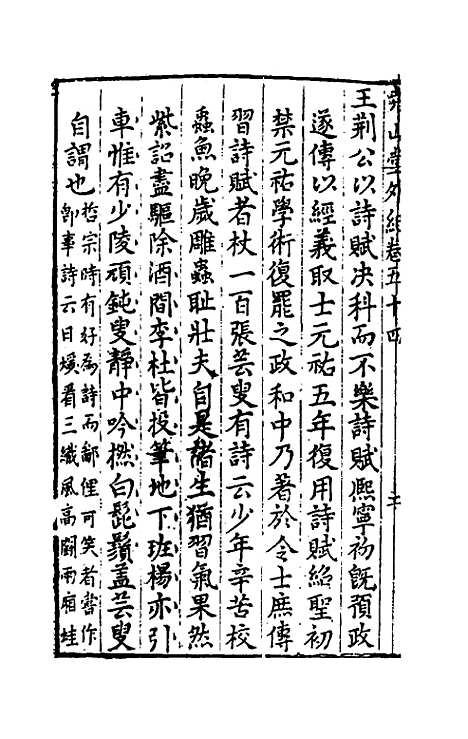 堯山堂外紀卷五十四 二
王荆公以詩賦决科而不樂詩賦熈寧初旣預政
遂傳以經義取士元祐五年復用詩賦紹聖初
禁元祐學術復罷之政和中乃著於令士庶傳
習詩賦者杖一百張芸叟有詩云少年辛苦校
蟲魚晚歲雕蟲耻壯夫自是諸生猶習氣果然
紫詔盡驅除酒間李杜皆投筆地下班楊亦引
車惟有少陵頑鈍叟靜中吟撚白髭鬚盖芸叟
自謂也
哲宗時有好爲詩而鄙俚可笑者嘗作
卽事詩云日煖看三織風高鬬兩廂蛙